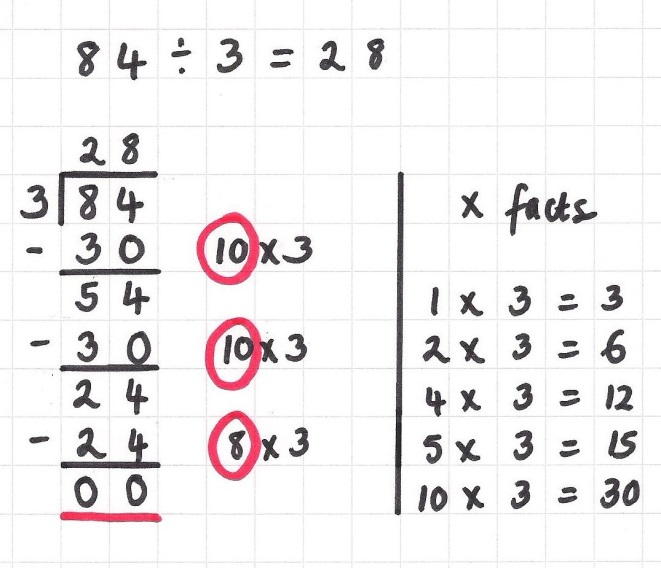 84 ÷ 3 = 28
28
3 84
- 30 10 x 3
54
- 30 10 x 3
24
- 24 8 x 3
00
x facts
1 x 3 = 3
2 x 3 = 6
4 x 3 = 12
5 x 3 = 15
10 x 3 = 30